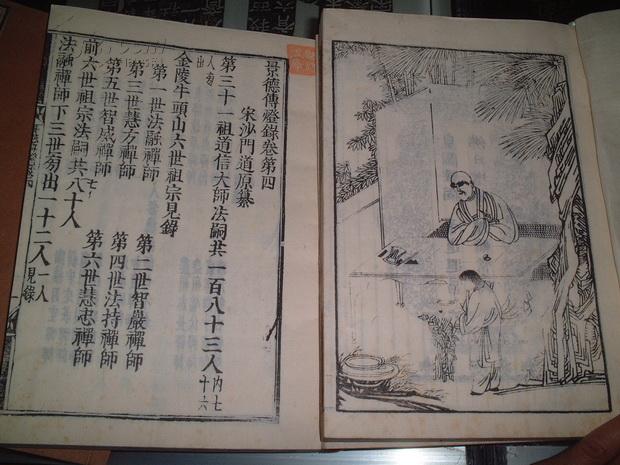 景德傳燈錄卷第四
宋沙門道原纂
第三十一祖道信大師法嗣共一百八十三人 內七十六
人旁出
金陵牛頭山六世祖宗見錄
第一世法融禪師 第二世智嚴禪師
第三世慧方禪師 第四世法持禪師
第五世智威禪師 第六世慧忠禪師
前六世祖宗法嗣共八十七人
法融禪師下三世旁出一十二人 一人見錄